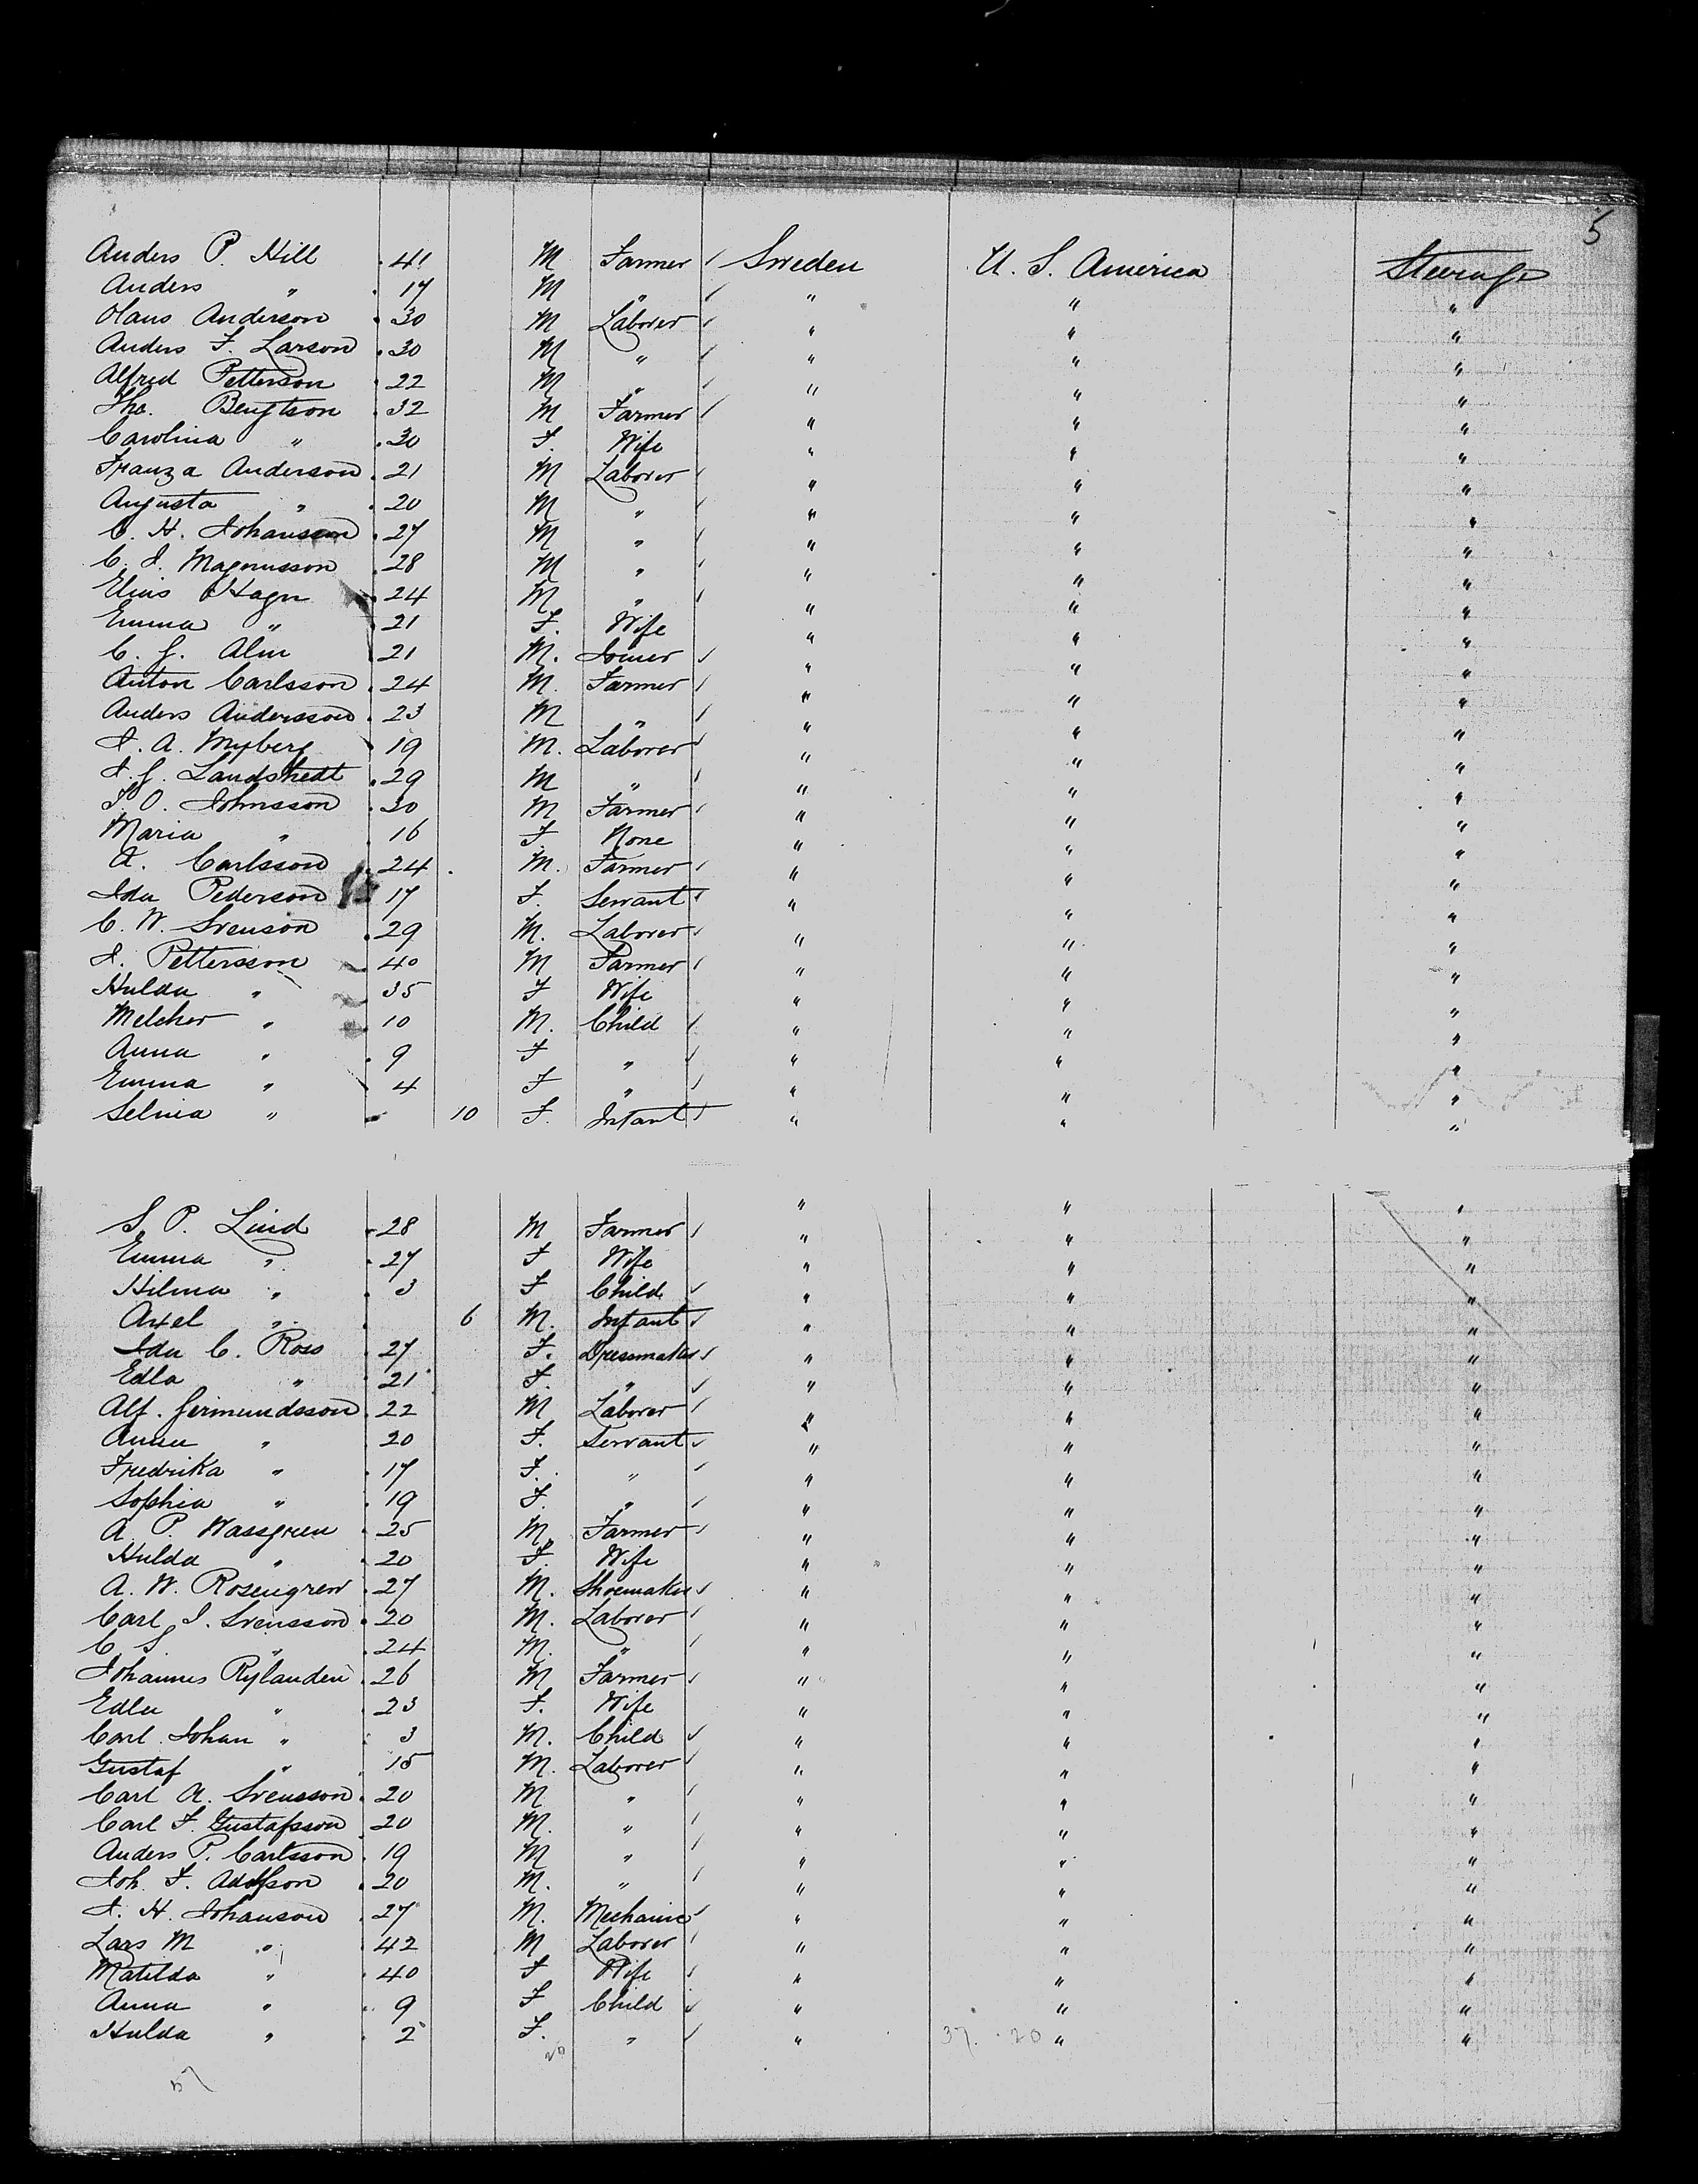 5
Anders P. Hill 41 M Farmer Sweden U. S. America Steerage
Anders " 17 M " " " "
Hans Anderson 30 M Laborer " " "
Anders F. Larson 30 M " " " "
Alfred Petterson 22 M " " " "
Jho. Bengtson 32 M Farmer " " "
Carolina " 30 F. Wife " " "
Franz a Anderson 21 M Laborer " " "
Augusta " 20 M " " " "
C. H. Johanson 27 M " " " "
C. J. Magnusson 28 M " " " "
Elias Hagn 24 M " " " "
Emma " 21 F. Wife " " "
C. G. Alm 21 M. Joiner " " "
Anton Carlsson 24 M. Farmer " " "
Anders Andersson 23 M " " " "
J. A. Myberg 19 M. Laborer " " "
J. G. Landstedt 29 M " " " "
P. O. Johnsson 30 M Farmer " " "
Maria " 16 F. None " " "
A. Carlsson 24 M. Farmer " " "
Ida Pederson 17 F. Servant " " "
C. W. Svenson 29 M. Laborer " " "
J. Pettersson 40 M Farmer " " "
Hulda " 35 F Wife " " "
Melcher " 10 M. Child " " "
Anna " 9 F " " " "
Emma " 4 F " " " "
Selma " 10 F. Infant " " "
S. P. Lind 28 M Farmer " " "
Emma " 27 F Wife " " "
Hilma " 3 F Child " " "
Axel " 6 M. Infant " " "
Ida C. Ross 27 F. Dressmaker " " "
Edla " 21 F. " " " "
Alf. Germundsson 22 M Laborer " " "
Anna " 20 F. Servant " " "
Fredrika " 17 F. " " " "
Sophia " 19 F. " " " "
A. P. Wassgren 25 M. Farmer " " "
Hulda " 20 F. Wife " " "
A. W. Rosengren 27 M. Shoemaker " " "
Carl J. Svensson 20 M. Laborer " " "
C. S. " 24 M. " " " "
Johannes Rylanden 26 M Farmer " " "
Edla " 23 F. Wife " " "
Carl Johan " 3 M. Child " " "
Gustaf " 15 M. Laborer " " "
Carl A. Svensson 20 M " " " "
Carl F. Gustafsson 20 M. " " " "
Anders P. Carlsson 19 M " " " "
Joh. F. Adolfson 20 M. " " " "
J. H. Johanson 27 M. Mechanic " " "
Lars M " 42 M Laborer " " "
Matilda " 40 F Wife " " "
Anna " 9 F Child " " "
Hulda " 2 F. " " 37. 20 " "
20
57